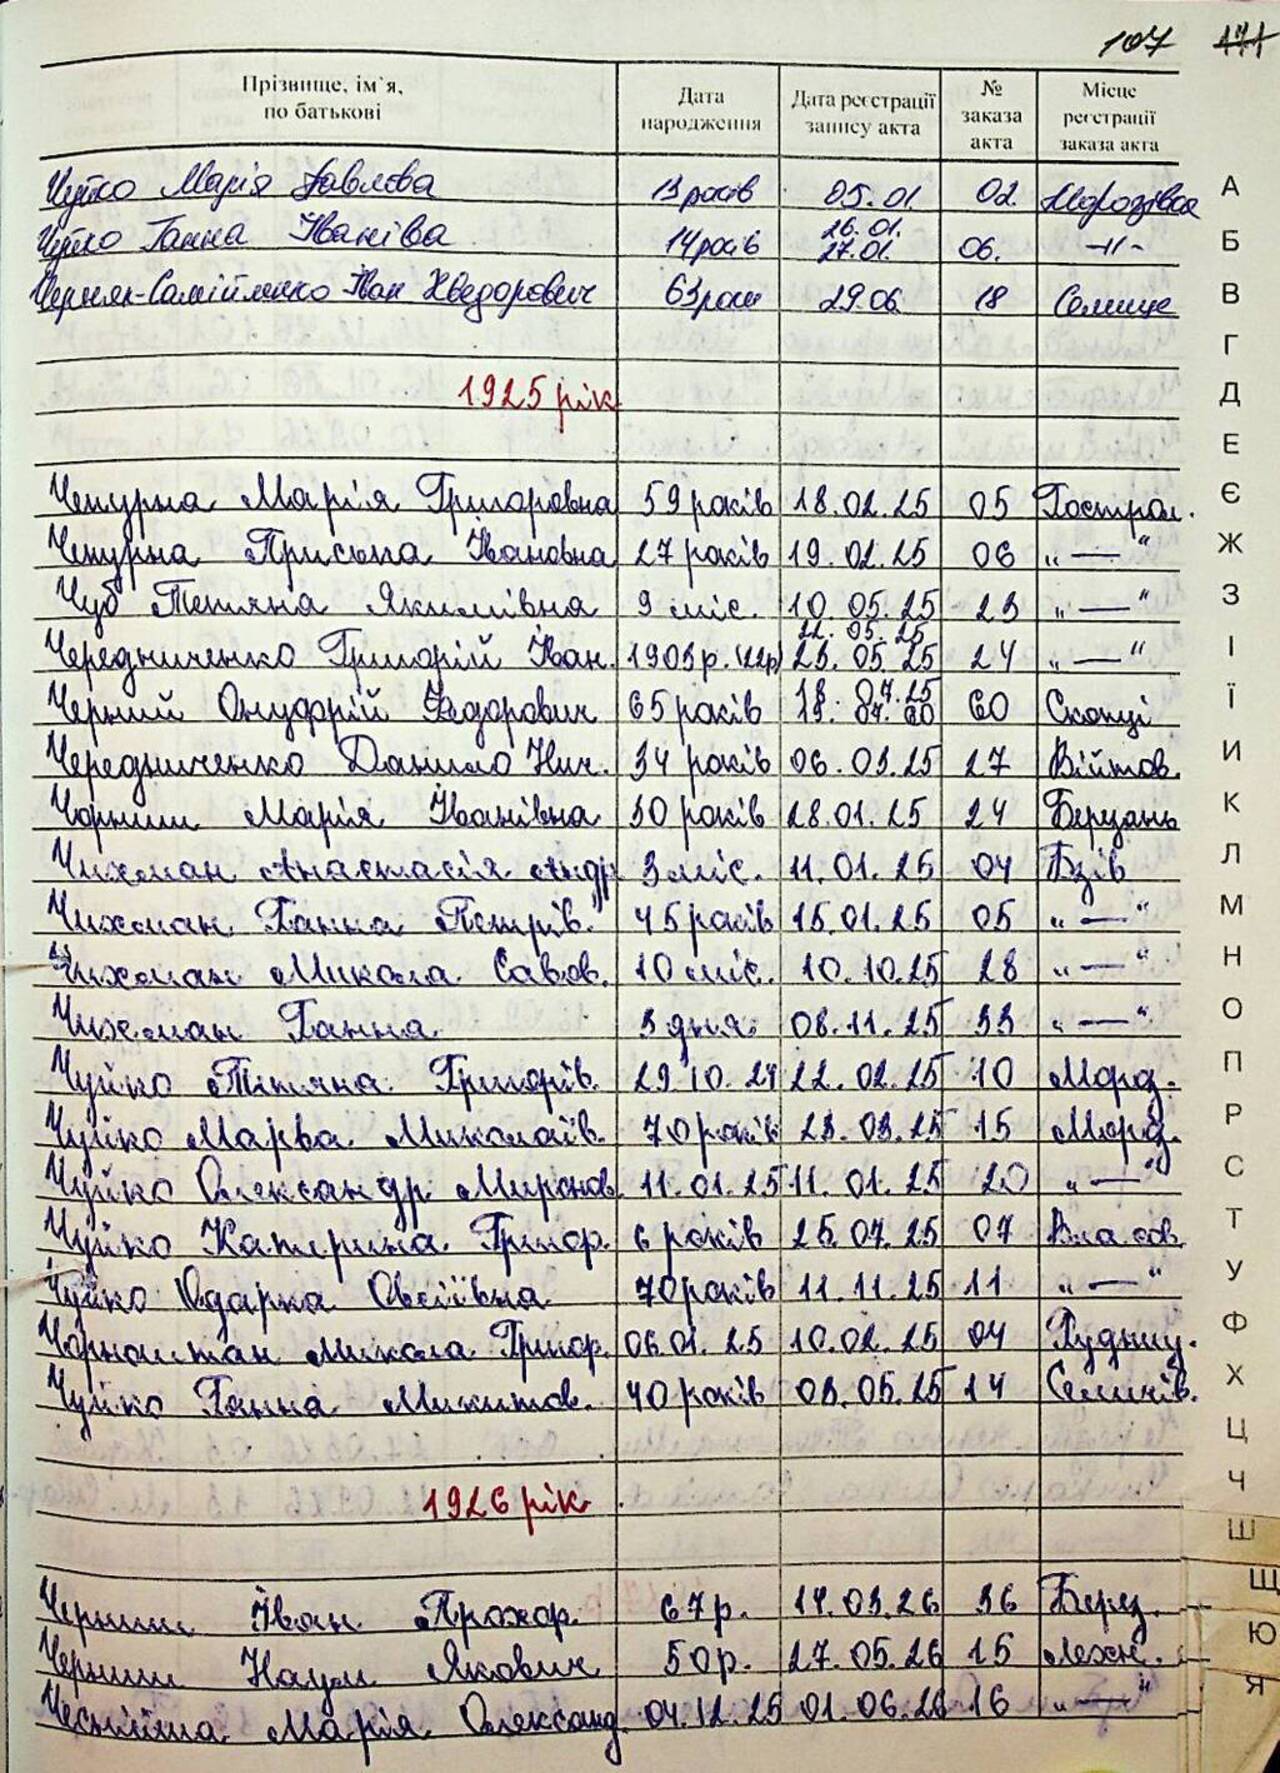 107 171
Прізвище, ім`я, по батькові Дата народження Дата реєстрації запису акта № заказа акта Місце реєстрації заказа акта
Чуйко Марія Павлєва 13 років 05.01. 02. Морозівка А
26.01.
Чуйко Ганна Іваніва 14 років 27.01. 06. -//- Б
Черняк-Самійленко Іван Хведорович 63 роки 29.06. 18 Селище В
Г
1925 рік Д
Е
Чепурна Марія Григоровна 59 років 18.02.25 05 Гострол. Є
Чепурна Приська Івановна 27 років 19.02.25 06 „—“ Ж
Чуб Тетяна Якимівна 9 міс. 10.05.25 23 „—“ З
22.05.25
Чередниченко Григорій Іван. 1903р. (22р) 23.05.25 24 „—“ І
18.07.25
Черний Онуфрій Федорович 65 років 19.07.60 60 Скопці Ї
Чередниченко Данило Нич. 34 років 06.03.25 27 Війтов. И
Чорниш Марія Іванівна 30 років 28.01.25 24 Березань К
Чихман Анастасія Андр 3 міс. 11.01.25 04 Бзів Л
Чихман Ганна Петрів. 45 років 15.01.25 05 „—“ М
Чихман Микола Савов. 10 міс. 10.10.25 28 „—“ Н
Чихман Ганна 3 дня 08.11.25 33 „—“ О
Чуйко Тетяна Григорів. 29.10.24 22.02.25 10 Мороз. П
Чуйко Марва Миколаїв. 70 років 23.03.25 15 Мороз. Р
Чуйко Олександр Миронов. 11.01.25 11.01.25 20 „—“ С
Чуйко Катерина Григор. 6 років 25.07.25 07 Власов. Т
Чуйко Одарка Овсіївна 70 років 11.11.25 11 „—“ У
Чорноштан Микола Григор. 06.01.25 10.02.25 04 Рудниц. Ф
Чуйко Ганна Микитов. 40 років 03.05.25 14 Семенів. Х
Ц
1926 рік Ч
Ш
Черниш Іван Прохор. 67р. 14.03.26 36 Берез. Щ
Черниш Наум Якович 50р. 27.05.26 15 Лехн. Ю
Чеснійша Марія Олександ. 04.12.25 01.06.26 16 „—“ Я